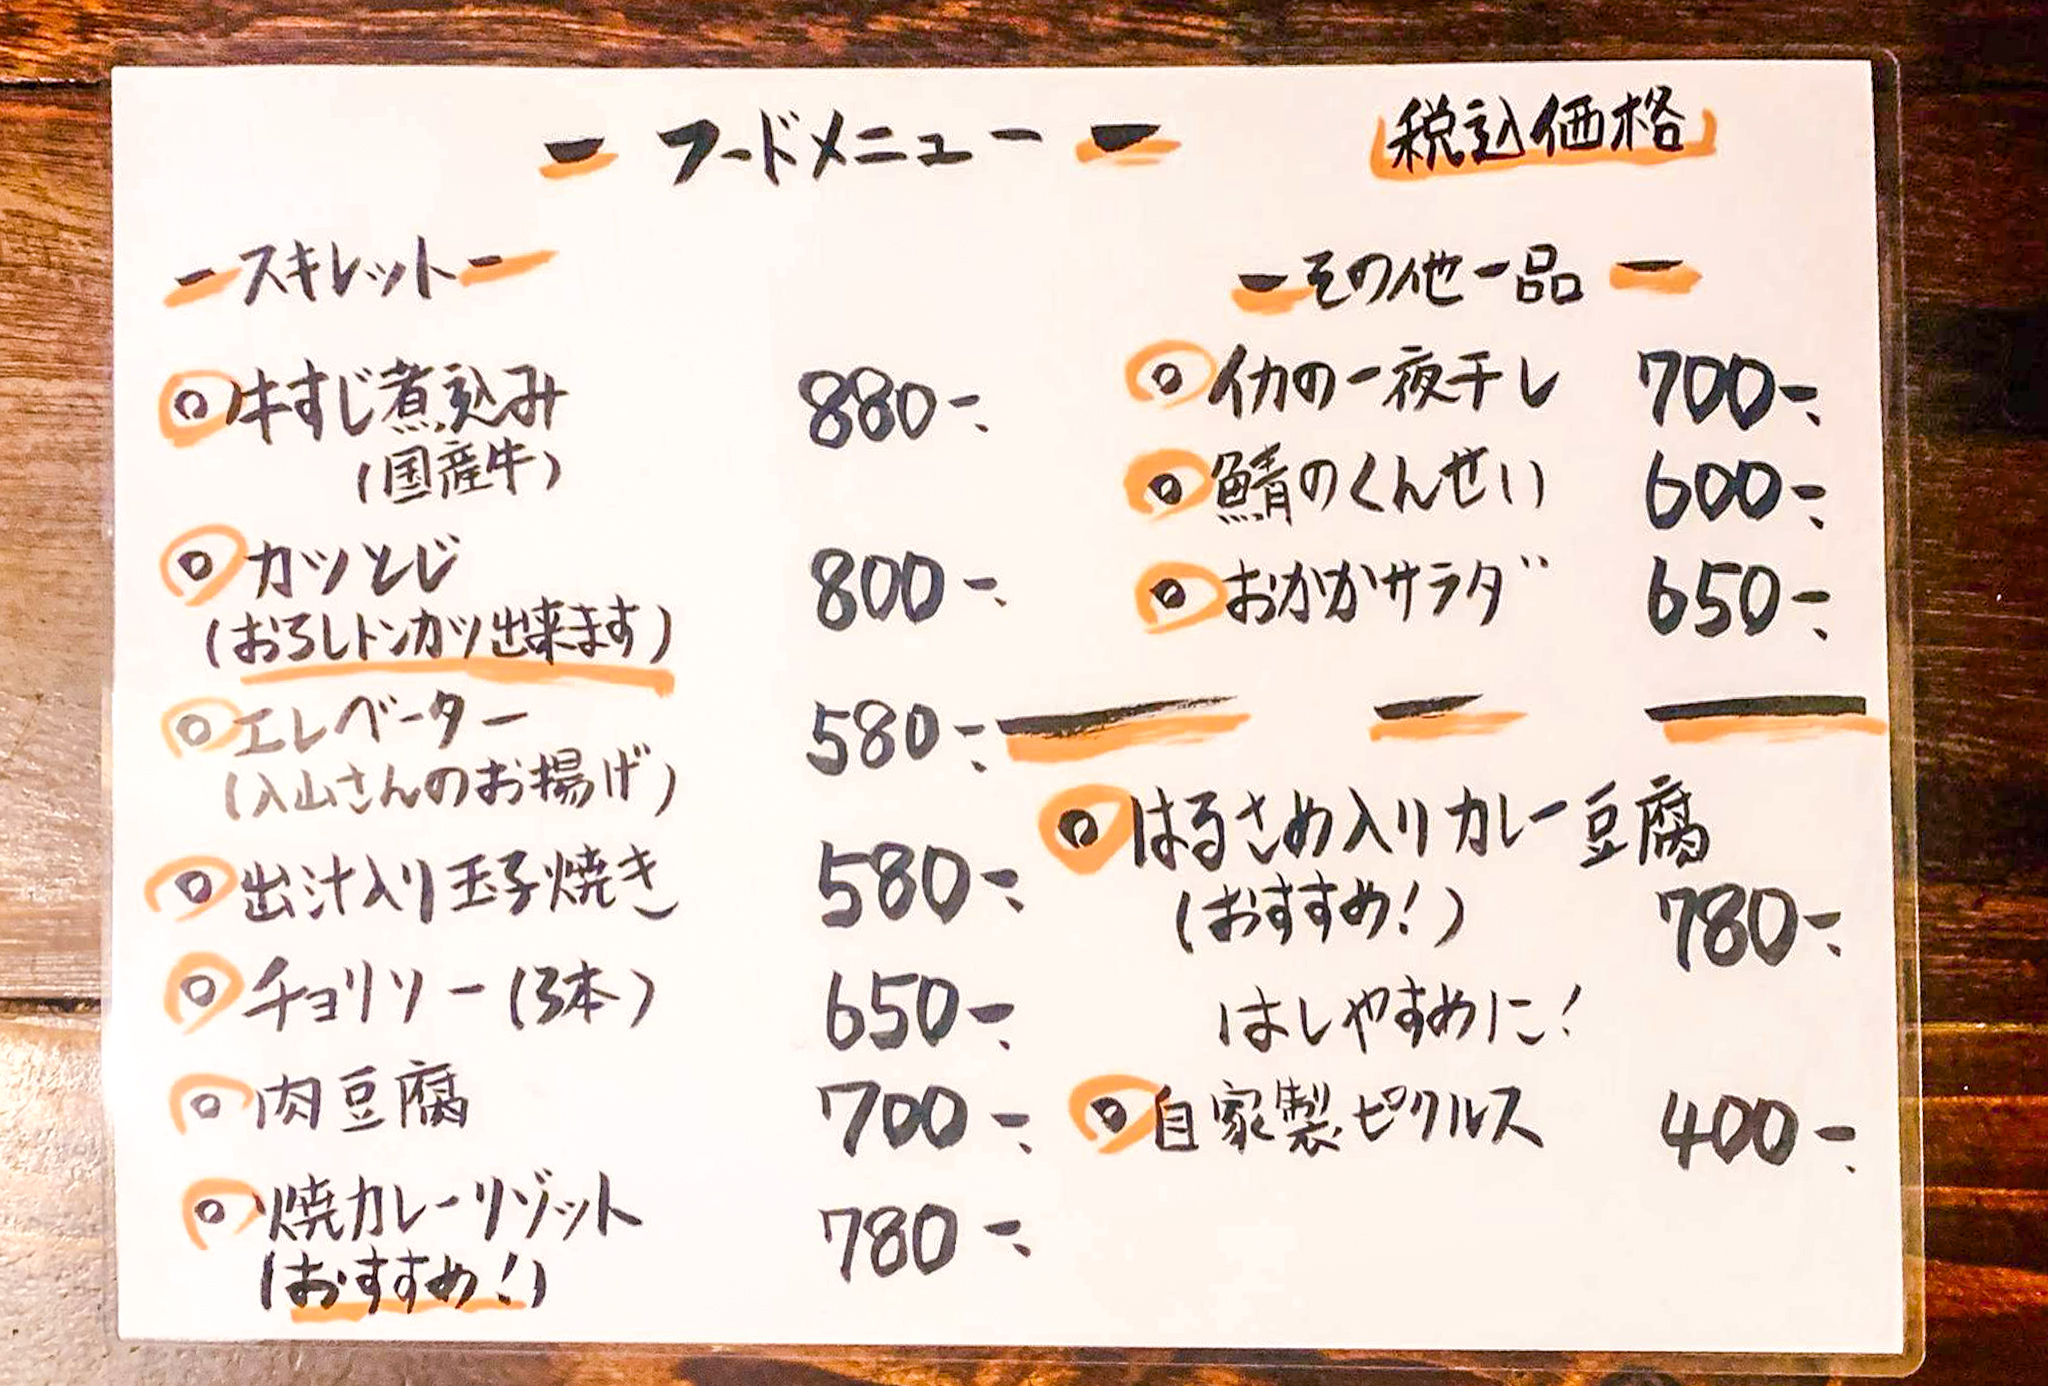 フードメニュー
税込価格
スキレット
牛すじ煮込み 880-
(国産牛)
カツとじ 800-
(おろしトンカツ出来ます)
エレベーター 580-
(入山さんのお揚げ)
出汁入り玉子焼き 580-
チョリソー(3本) 650-
肉豆腐 700-
焼カレーリゾット 780-
(おすすめ!)
その他一品
イカの一夜干し 700-
鯖のくんせい 600-
おかかサラダ 650-
はるさめ入りカレー豆腐
(おすすめ!) 780-
はしやすめに!
自家製ピクルス 400-